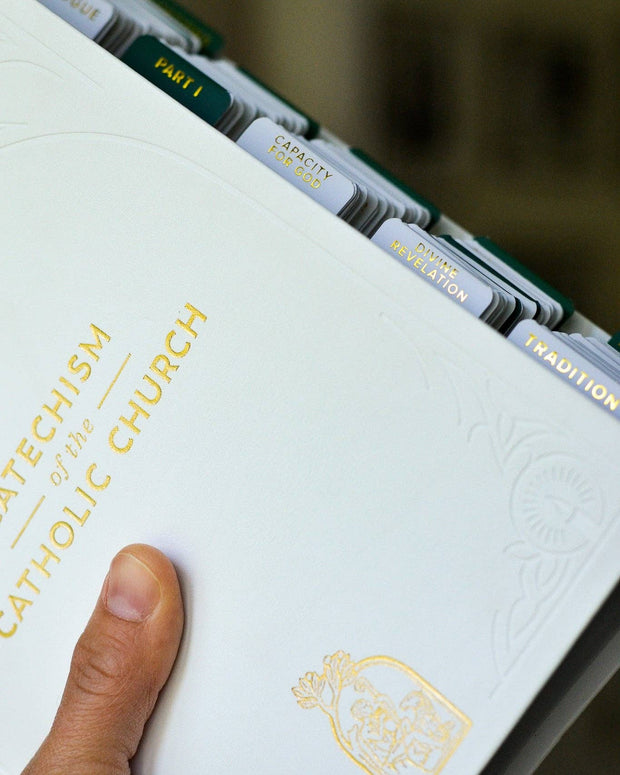 OGUE
PART I
CAPACITY
FOR GOD
DIVINE
REVELATION
TRADITION
ATECHISM
of the
CATHOLIC CHURCH